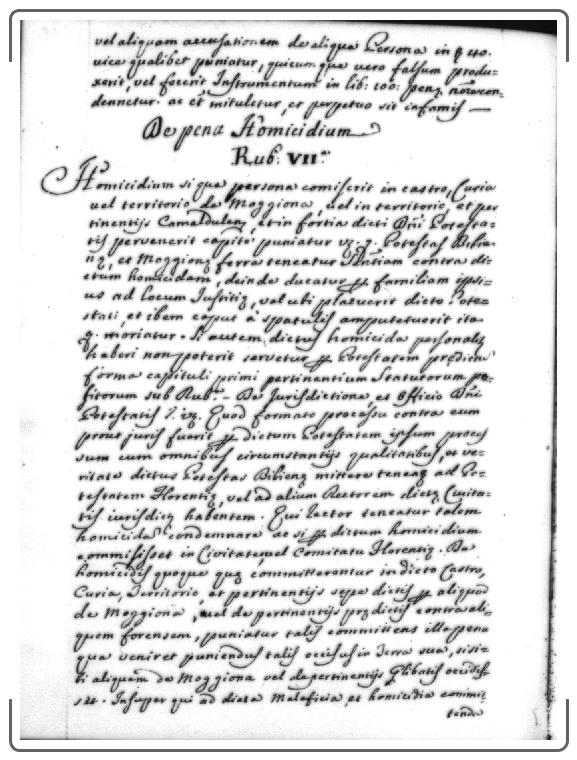 vel aliquam accusationem de aliqua Persona in q̃ 40.
vice qualibet puniatur, quicumque vero falsum produ-
xerit, vel fecerit Instrumentum in lib: 100: penę
dennetur. ac et mituletur, et perpetuo sit infamis —
De pena Homicidium
Rub. VII.a
Homicidium si qua persona comiserit in castro, Curia
vel territorio de Moggiona, vel in territorio, et per
tinentijs Camaldulen, et in fortia dicti Dñi Potesta-
tis pervenerit capite puniatur vz. q. Potestas Bibie-
nę, et Moggionę ferre teneatur Sñtiam contra di-
ctum homicidam, deinde ducatur per familiam ipsi-
us ad locum Iustitię, vel ubi placuerit dicto Pote-
stati, et ibem caput a spatulis amputetur ita
q. moriatur. Si autem dictus homicida personalis
haberi non poterit servetur per Potestatem
forma capituli primi pertinentium Statutorum po-
sitorum sub Rub.a - De Jurisdictione et Officio Dñi
Potestatis 7. vz. Quod formato processu contra eum
prout juris fuerit per dictum Potestatem ipsum proces
sum cum omnibus circumstantijs qualitatibus, et ve-
ritate dictus Potestas Bibienę mittere teneaę ad Po-
testatem Florentię, vel ad alium Rectorem dictę Civita-
tis iurisdicę habentem. Qui Rector teneatur talem
homicidã condemnare ac si per dictum homicidium
commississet in Civitate, vel Comitatu Florentię. De
homicidijs quoque quę committerentur in dicto Castro,
Curia, Territorio, et pertinentijs sepe dictis per aliquod
de Moggiona, vel de pertinentijs prędictis contra ali-
quem forensem, puniatur talis committens illa pena
qua veniret puniendus talis occisus in Terra sua, si si-
bi aliquem de Moggiona vel de pertinentijs occidis-
set. Insuper qui ad dicta Maleficia, et homicidia commit-
tenda